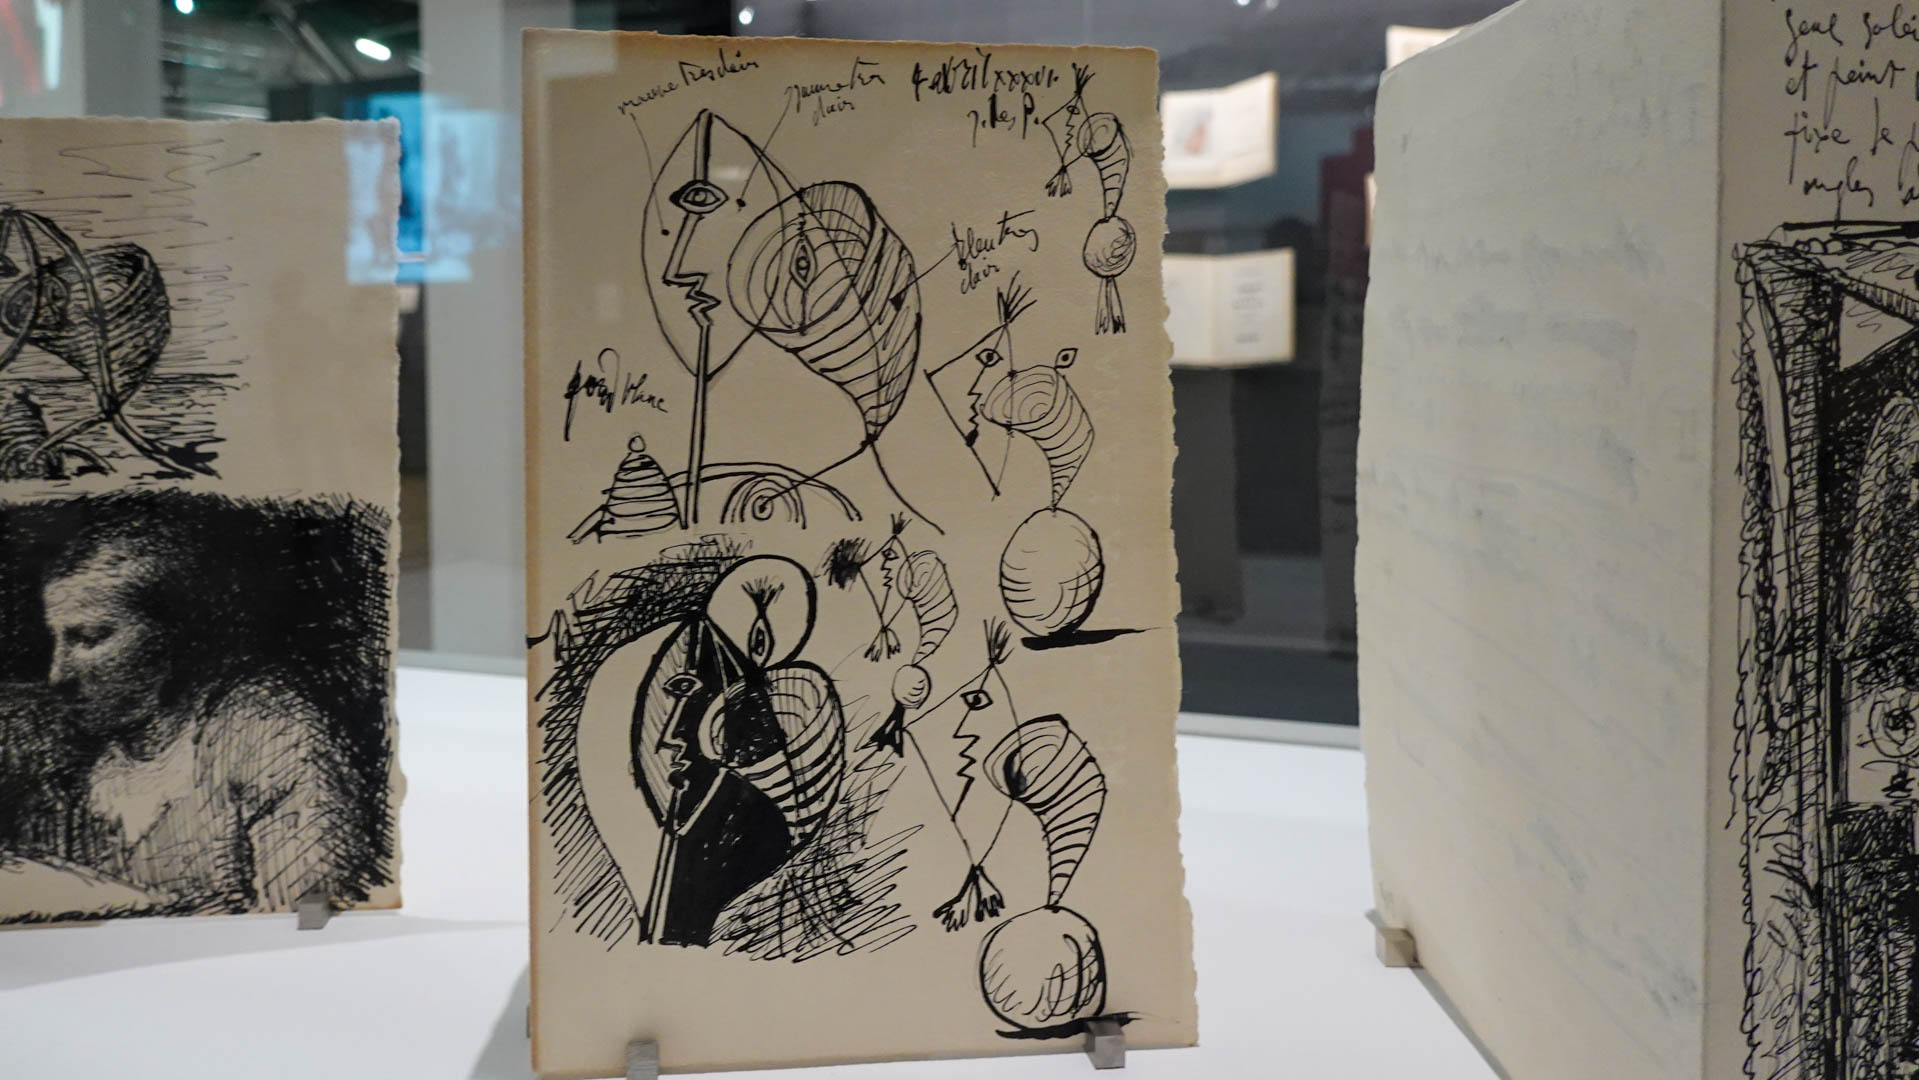 mauve tres clair
jaune tres
clair
4 avril XXXVI.
J. les P.
bleu tres
clair
fond blanc
seul solei
et peint
fixe le
ongles